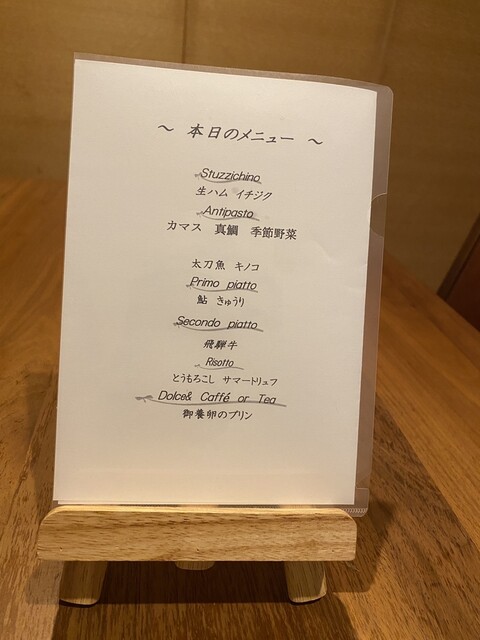 ～ 本日のメニュー ～
Stuzzichino
生ハム イチジク
Antipasto
カマス 真鯛 季節野菜
太刀魚 キノコ
Primo piatto
鮎 きゅうり
Secondo piatto
飛騨牛
Risotto
とうもろこし サマートリュフ
Dolce& Caffé or Tea
御養卵のプリン